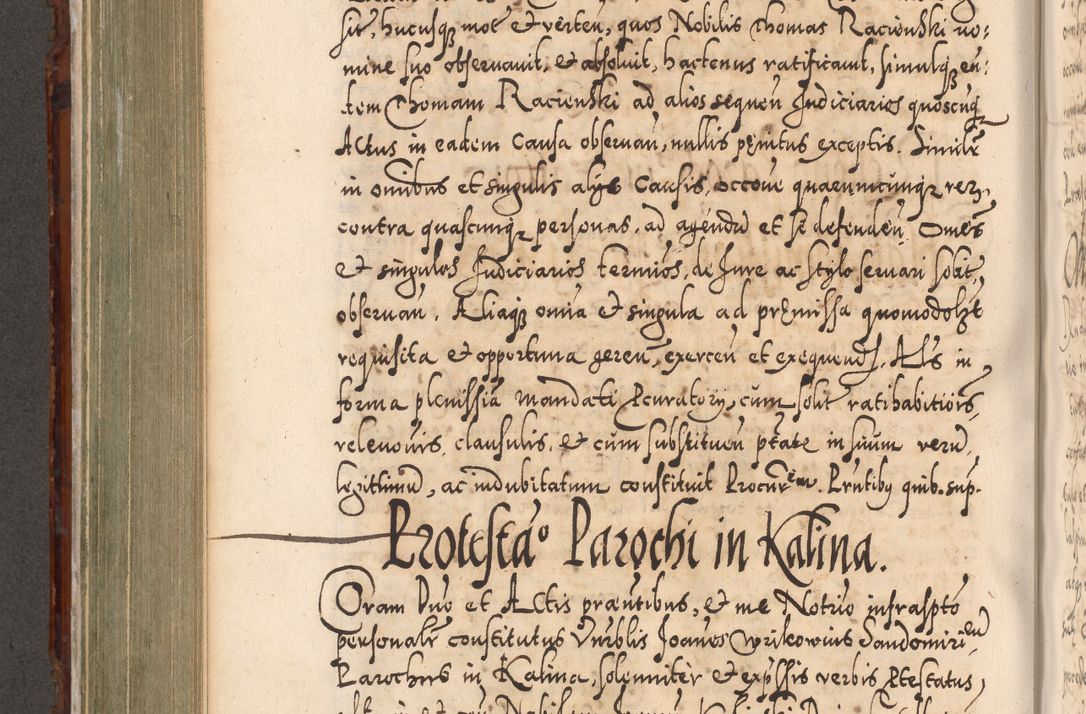 sit, hucusq₃ mot et verten, quos Nobilis Thomas Racienski no:
mine suo observavit, et absolvit, hactenus ratificavit, simulq₃ eun:
tem Thomam Racienski ad alios sequen Judiciarios quoscūq₃
Actus in eadem Causa observan, nullis penitus exceptis. Similr
in omnibus et singulis alys Causis, occoe quarumcunq₃ rerz,
contra quascunq₃ personas, ad agendū et se defenden, Omēs
et singulos Judiciarios termios, de Jure ac stylo servari solit,
observan. Aliaq₃ omnia et singula ad premissa quomodolzt
requisita et opportuna geren, exercen et exequend, Als in
forma plenissia mandati Pcuratory, cum solit ratihabitiois,
relevois, clausulis, et cum substituen ptate in suum verū,
legitimū, ac indubitatum constituit Procur em. Pntiby quib. sup.
Protestao Parochi in Kalina.
Coram Duo et Actis praentibus, et me Notrio infraspto
personalr constitutus Vnrblis Joanes Wrikowius Sandomirien
Parochus in Kalina, solemniter et expssis verbis Ptestatus,